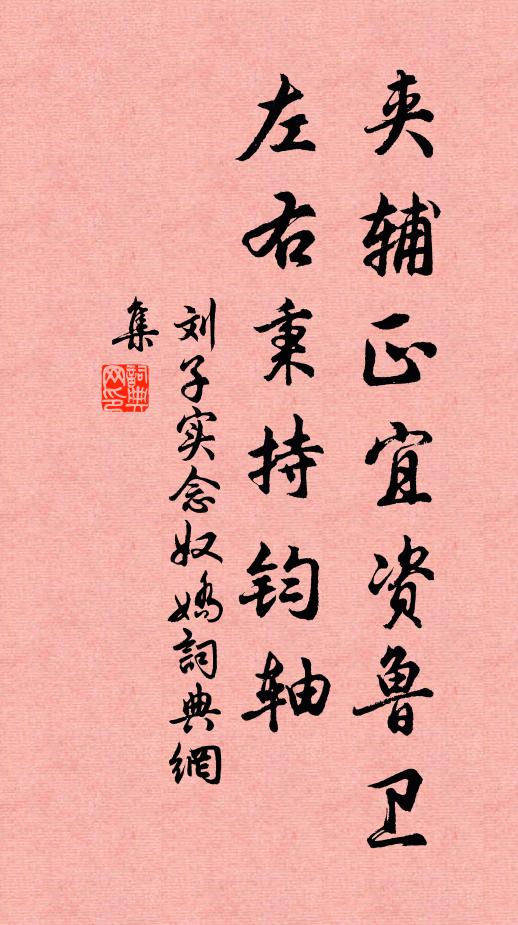 夹辅正宜资鲁卫
左右秉持钧轴
刘子实念奴娇詞典網
集
詞典网印